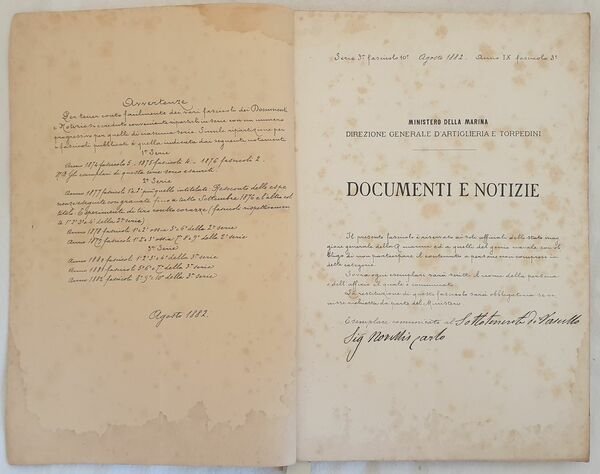 Avvertenze
Per tener conto facilmente dei vari fascicoli dei Documenti
e Notizie si è creduto conveniente ripartirli in serie con un numero
progressivo per quelli di ciascuna serie. Simile ripartizione per
i fascicoli pubblicati è quella indicata dal seguente notamento
1ª Serie
Anno 1874 fascicoli 5. 1875 fascicoli 4. 1876 fascicoli 2.
NB gli esemplari di questa serie sono esauriti.
2ª Serie
Anno 1877 fascicoli 1º e 2º più quelli intitolati: Resoconto delle espe
rienze eseguite con granate fino a tutto Settembre 1876 e l'altro col
titolo Esperimenti di tiro contro corazze (fascicoli rispettivamen
te 1º 2º 3º e 4º della 2ª serie)
Anno 1878 fascicoli 1º e 2º ossia 5º e 6º della 2ª serie
Anno 1879 fascicoli 1º 2º e 3º ossia 7º 8º e 9º della 2ª serie
3ª Serie
Anno 1880 fascicoli 1º 2º 3º e 4º della 3ª serie
Anno 1881 fascicoli 5º 6º e 7º della 3ª serie
Anno 1882 fascicoli 8º 9º e 10º della 3ª serie
Agosto 1882.
Serie 3ª fascicolo 10º Agosto 1882. Anno IX fascicolo 3º
MINISTERO DELLA MARINA
DIREZIONE GENERALE D'ARTIGLIERIA E TORPEDINI
DOCUMENTI E NOTIZIE
Il presente fascicolo è riservato ai soli ufficiali dello stato mag
giore generale della R. marina ed a quelli del genio navale con ob
bligo di non parteciparne il contenuto a persone non comprese in
dette categorie
Sovra ogni esemplare sarà scritto il nome della persona
o dell'ufficio al quale è comunicato.
La restituzione di questo fascicolo sarà obbligatoria se ve
nisse richiesta da parte del Ministero
Esemplare comunicato al Sottotenente di Vascello
Sig Carlo